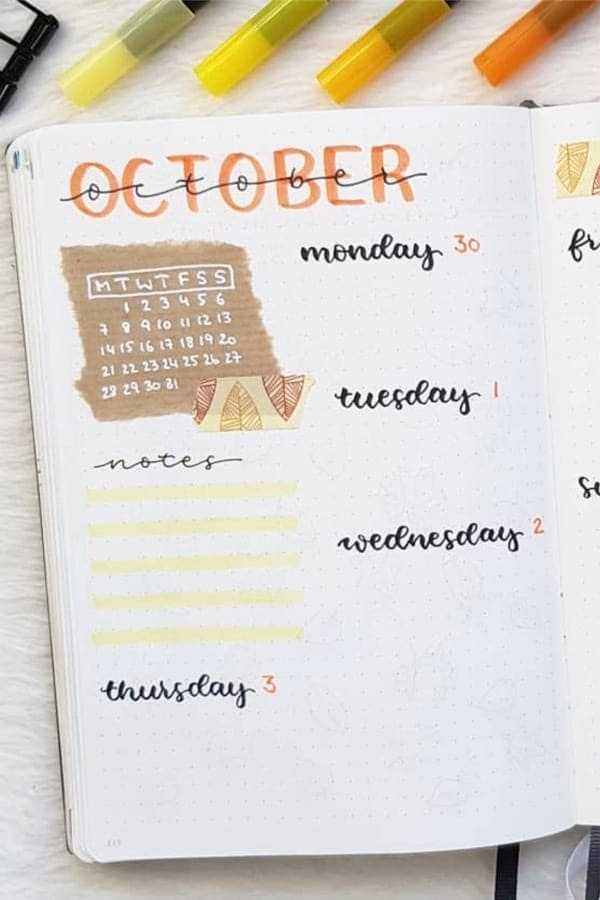 OCTOBER
october
M T W T F S S
1 2 3 4 5 6
7 8 9 10 11 12 13
14 15 16 17 18 19 20
21 22 23 24 25 26 27
28 29 30 31
notes
monday 30
tuesday 1
wednesday 2
thursday 3